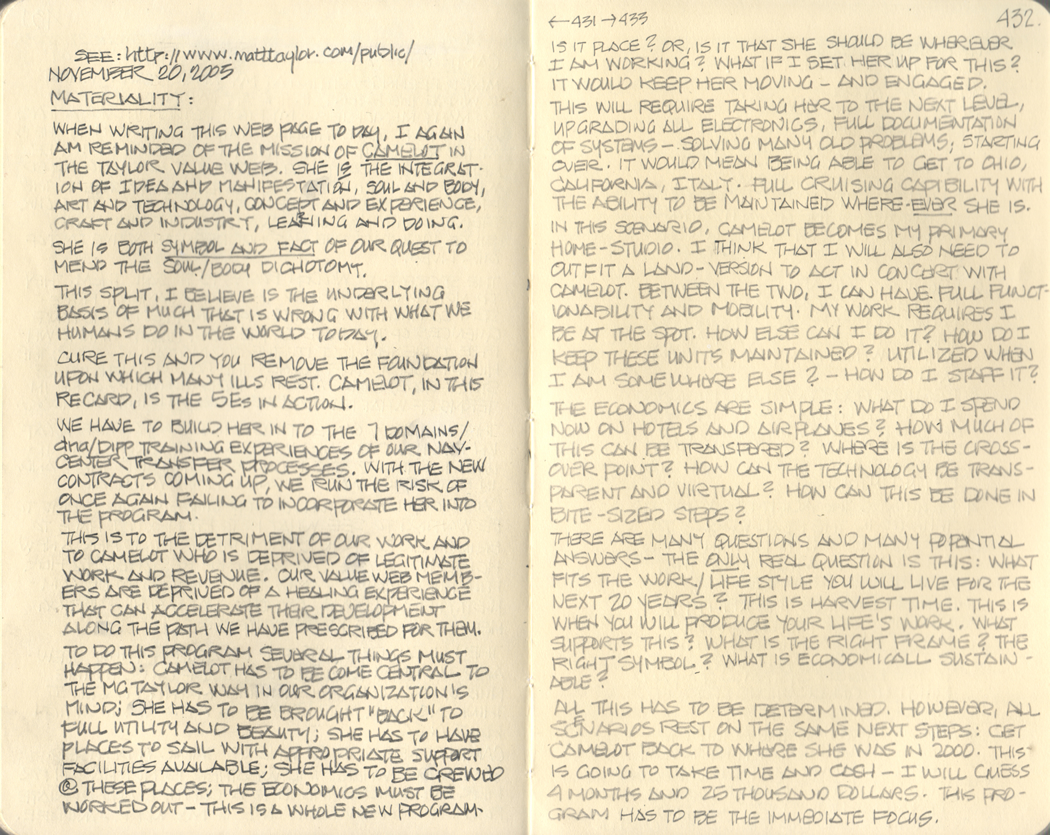 SEE: http://www.matttaylor.com/public/
NOVEMBER 20, 2005
MATERIALITY:
WHEN WRITING THIS WEB PAGE TO DAY, I AGAIN
AM REMINDED OF THE MISSION OF CAMELOT IN
THE TAYLOR VALUE WEB. SHE IS THE INTEGRAT-
ION OF IDEA AND MANIFESTATION, SOUL AND BODY,
ART AND TECHNOLOGY, CONCEPT AND EXPERIENCE,
CRAFT AND INDUSTRY, LEARNING AND DOING.
SHE IS BOTH SYMBOL AND FACT OF OUR QUEST TO
MEND THE SOUL/BODY DICHOTOMY.
THIS SPLIT, I BELIEVE IS THE UNDERLYING
BASIS OF MUCH THAT IS WRONG WITH WHAT WE
HUMANS DO IN THE WORLD TODAY.
CURE THIS AND YOU REMOVE THE FOUNDATION
UPON WHICH MANY ILLS REST. CAMELOT, IN THIS
RECARD, IS THE 5Es IN ACTION.
WE HAVE TO BUILD HER IN TO THE 7 DOMAINS/
dna/DIPP TRAINING EXPERIENCES OF OUR NAV-
CENTER TRANSFER PROCESSES. WITH THE NEW
CONTRACTS COMING UP, WE RUN THE RISK OF
ONCE AGAIN FAILING TO INCORPORATE HER INTO
THE PROGRAM.
THIS IS TO THE DETRIMENT OF OUR WORK AND
TO CAMELOT WHO IS DEPRIVED OF LEGITIMATE
WORK AND REVENUE. OUR VALUE WEB MEMB-
ERS ARE DEPRIVED OF A HEALING EXPERIENCE
THAT CAN ACCELERATE THEIR DEVELOPMENT
ALONG THE PATH WE HAVE PRESCRIBED FOR THEM.
TO DO THIS PROGRAM SEVERAL THINGS MUST
HAPPEN: CAMELOT HAS TO BE COME CENTRAL TO
THE MG TAYLOR WAY IN OUR ORGANIZATION'S
MIND; SHE HAS TO BE BROUGHT "BACK" TO
FULL UTILITY AND BEAUTY; SHE HAS TO HAVE
PLACES TO SAIL WITH APPROPRIATE SUPPORT
FACILITIES AVAILABLE; SHE HAS TO BE CREWED
@ THESE PLACES; THE ECONOMICS MUST BE
WORKED OUT - THIS IS A WHOLE NEW PROGRAM.
←431 →433
432.
IS IT PLACE? OR, IS IT THAT SHE SHOULD BE WHEREVER
I AM WORKING? WHAT IF I SET HER UP FOR THIS?
IT WOULD KEEP HER MOVING - AND ENGAGED.
THIS WILL REQUIRE TAKING HER TO THE NEXT LEVEL,
UPGRADING ALL ELECTRONICS, FULL DOCUMENTATION
OF SYSTEMS - SOLVING MANY OLD PROBLEMS; STARTING
OVER. IT WOULD MEAN BEING ABLE TO GET TO OHIO,
CALIFORNIA, ITALY. FULL CRUISING CAPIBILITY WITH
THE ABILITY TO BE MAINTAINED WHERE-EVER SHE IS.
IN THIS SCENARIO, CAMELOT BECOMES MY PRIMARY
HOME-STUDIO. I THINK THAT I WILL ALSO NEED TO
OUTFIT A LAND-VERSION TO ACT IN CONCERT WITH
CAMELOT. BETWEEN THE TWO, I CAN HAVE FULL FUNCT-
IONABILITY AND MOBILITY. MY WORK REQUIRES I
BE AT THE SPOT. HOW ELSE CAN I DO IT? HOW DO I
KEEP THESE UNITS MAINTAINED? UTILIZED WHEN
I AM SOMEWHERE ELSE? - HOW DO I STAFF IT?
THE ECONOMICS ARE SIMPLE: WHAT DO I SPEND
NOW ON HOTELS AND AIRPLANES? HOW MUCH OF
THIS CAN BE TRANSFERED? WHERE IS THE CROSS-
OVER POINT? HOW CAN THE TECHNOLOGY BE TRANS-
PARENT AND VIRTUAL? HOW CAN THIS BE DONE IN
BITE-SIZED STEPS?
THERE ARE MANY QUESTIONS AND MANY POTENTIAL
ANSWERS - THE ONLY REAL QUESTION IS THIS: WHAT
FITS THE WORK/LIFE STYLE YOU WILL LIVE FOR THE
NEXT 20 YEARS? THIS IS HARVEST TIME. THIS IS
WHEN YOU WILL PRODUCE YOUR LIFE'S WORK. WHAT
SUPPORTS THIS? WHAT IS THE RIGHT FRAME? THE
RIGHT SYMBOL? WHAT IS ECONOMICALL SUSTAIN-
ABLE?
ALL THIS HAS TO BE DETERMINED. HOWEVER, ALL
SCNARIOS REST ON THE SAME NEXT STEPS: GET
CAMELOT BACK TO WHERE SHE WAS IN 2000. THIS
IS GOING TO TAKE TIME AND CASH - I WILL GUESS
4 MONTHS AND 25 THOUSAND DOLLARS. THIS PRO-
GRAM HAS TO BE THE IMMEDIATE FOCUS.